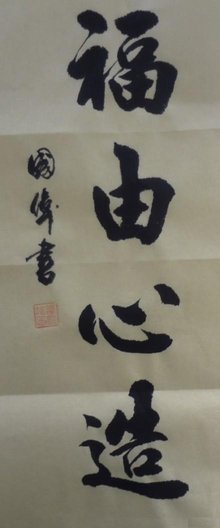 福由心造
國偉書